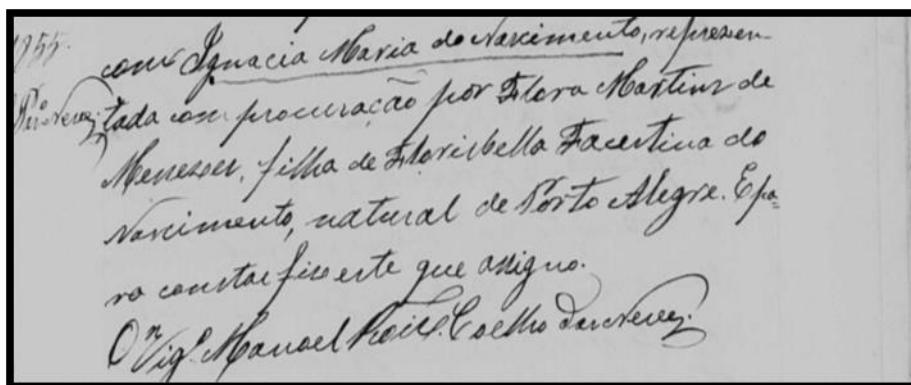 1855.
com Ignacia Maria do Nascimento, represen-
tada com procuração por Flora Martins de
Menezes, filha de Florisbella Faustina do
Nascimento, natural de Porto Alegre. E pa-
ra constar fiz este que assigno.
O Vigº. Manoel Coelho das Neves.